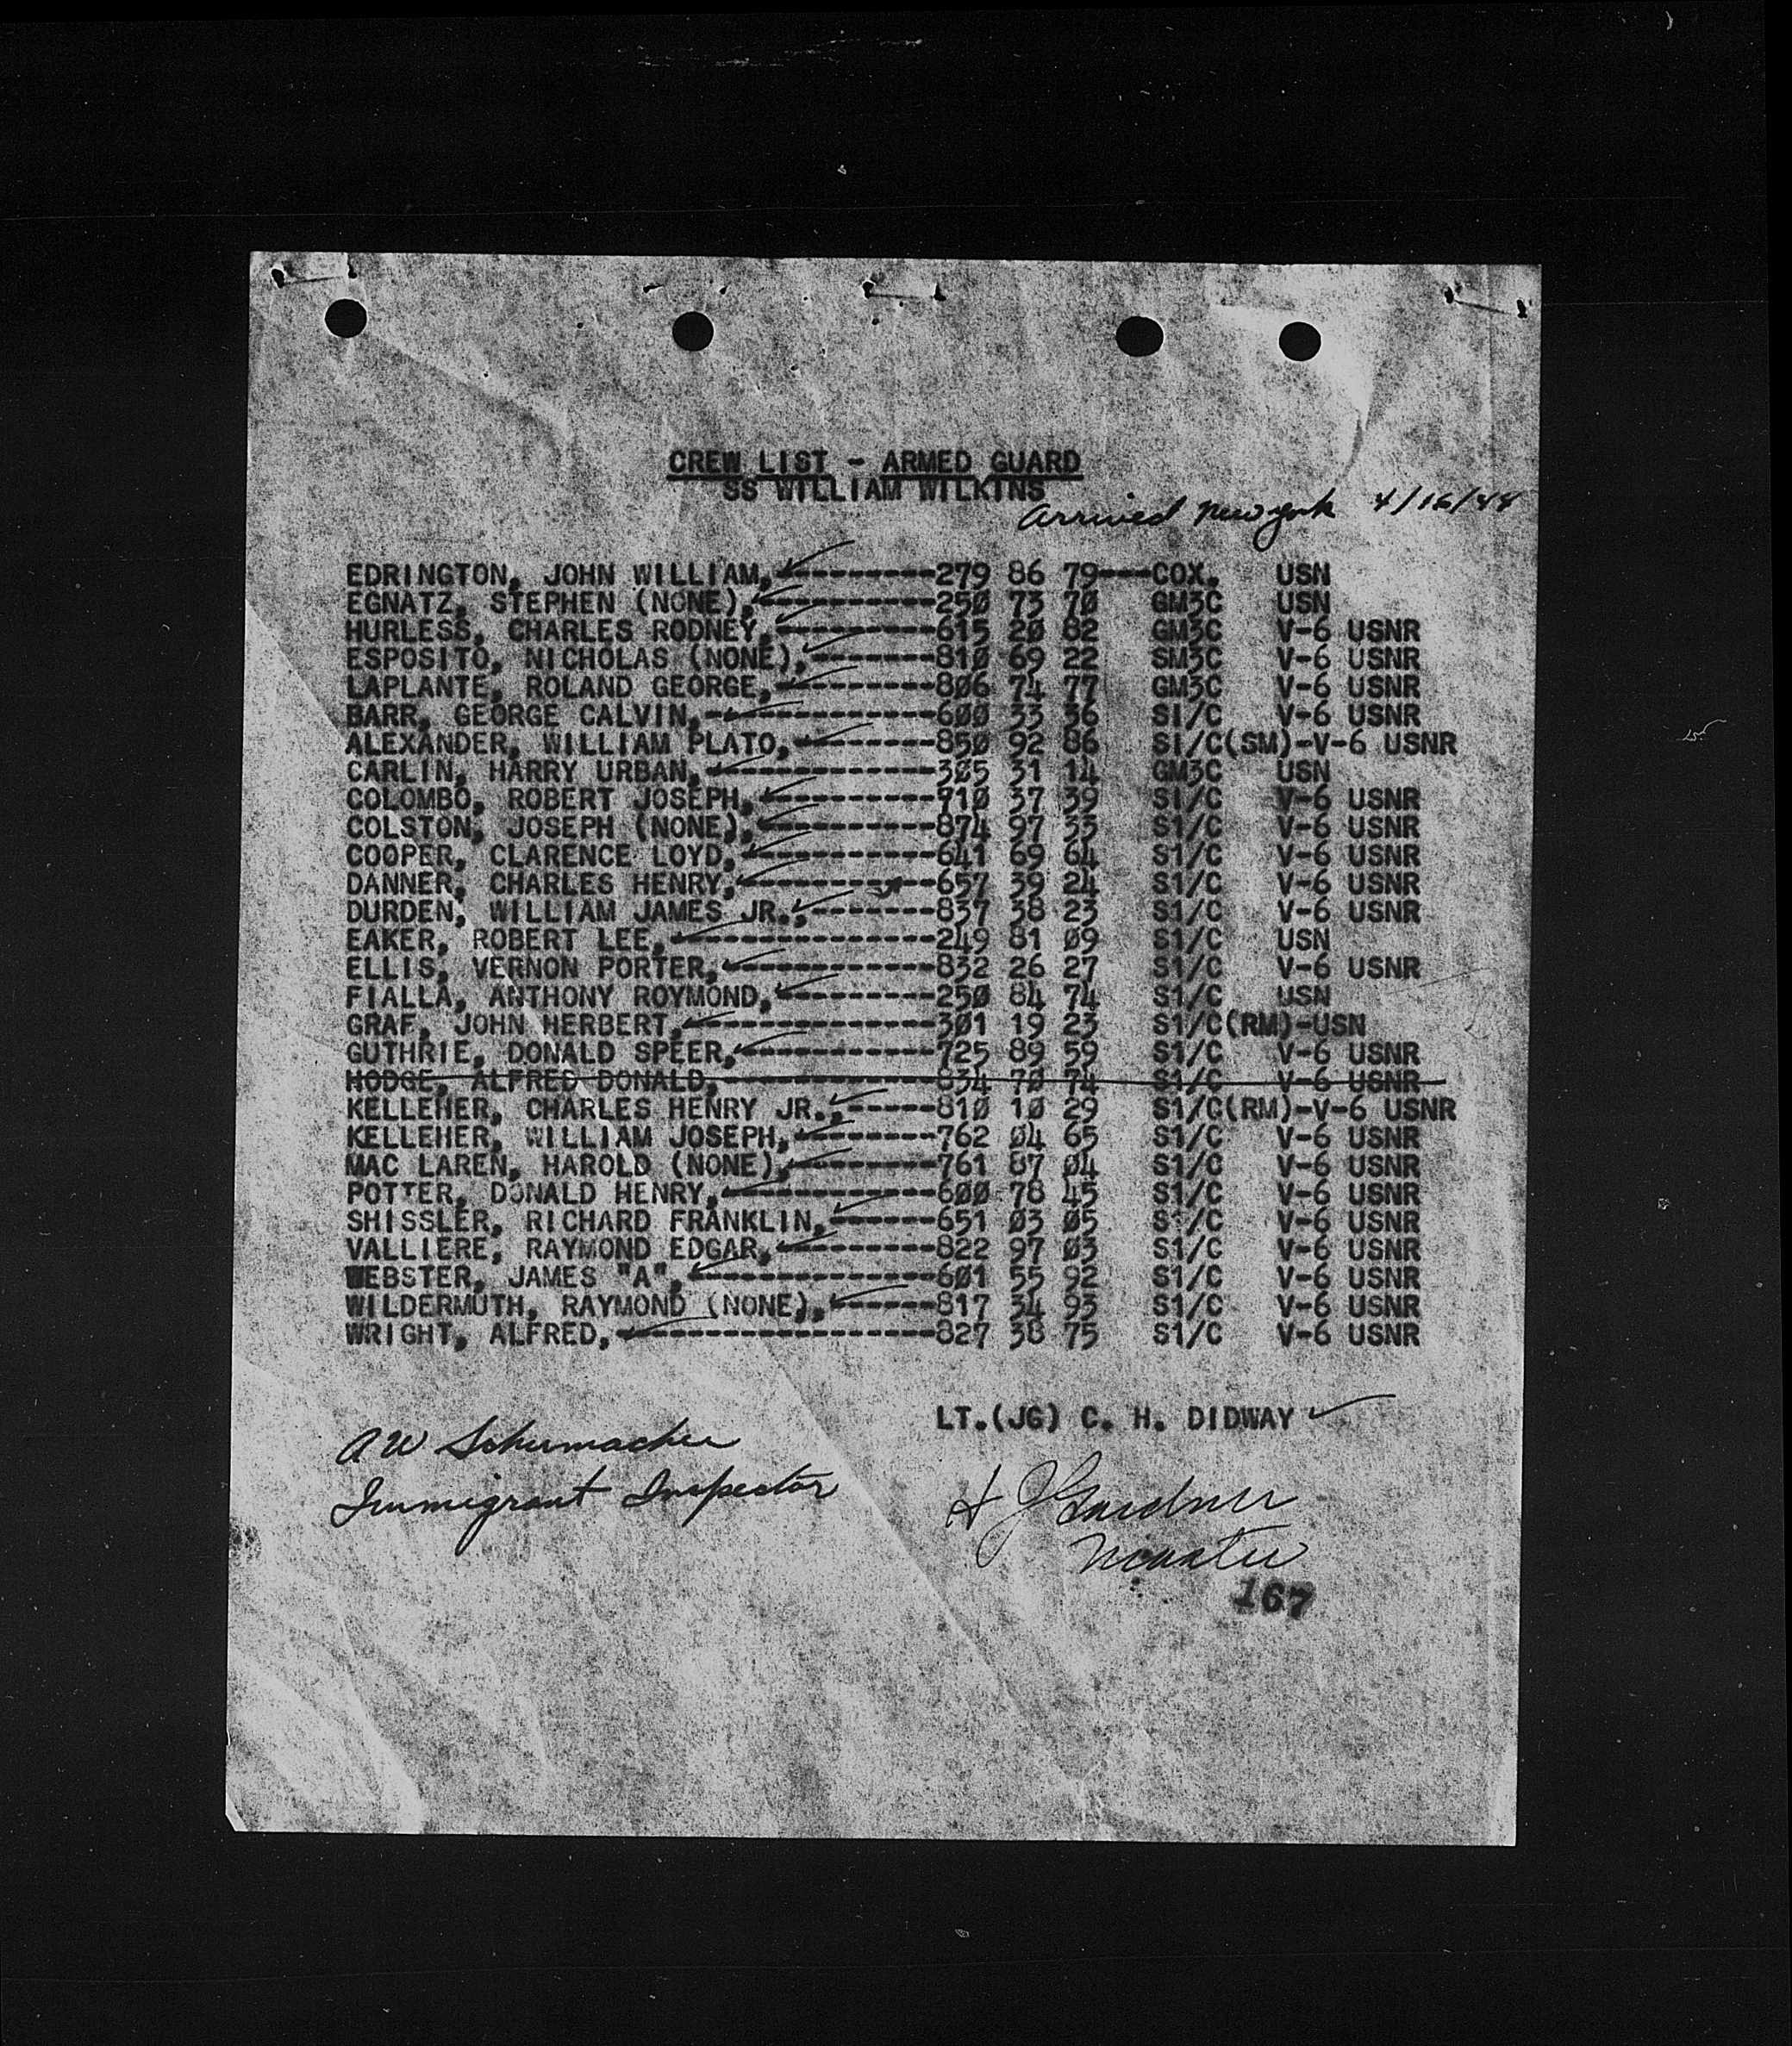 CREW LIST - ARMED GUARD
SS WILLIAM WILKINS
Arrived New York 4/16/44
EDRINGTON, JOHN WILLIAM,---------279 86 79---COX. USN
EGNATZ, STEPHEN (NONE),----------250 73 70 GM3C USN
HURLESS, CHARLES RODNEY,---------615 20 82 GM3C V-6 USNR
ESPOSITO, NICHOLAS (NONE),-------810 69 22 SM3C V-6 USNR
LAPLANTE, ROLAND GEORGE,---------806 74 77 GM3C V-6 USNR
BARR, GEORGE CALVIN,-------------600 33 36 S1/C V-6 USNR
ALEXANDER, WILLIAM PLATO,--------850 92 86 S1/C(SM)-V-6 USNR
CARLIN, HARRY URBAN,-------------305 31 14 GM3C USN
COLOMBO, ROBERT JOSEPH,----------710 37 39 S1/C V-6 USNR
COLSTON, JOSEPH (NONE),----------874 97 33 S1/C V-6 USNR
COOPER, CLARENCE LOYD,-----------641 69 64 S1/C V-6 USNR
DANNER, CHARLES HENRY,-----------657 39 24 S1/C V-6 USNR
DURDEN, WILLIAM JAMES JR.,-------837 38 23 S1/C V-6 USNR
EAKER, ROBERT LEE,---------------249 81 09 S1/C USN
ELLIS, VERNON PORTER,------------832 26 27 S1/C V-6 USNR
FIALLA, ANTHONY ROYMOND,---------250 84 74 S1/C USN
GRAF, JOHN HERBERT,--------------301 19 23 S1/C(RM)-USN
GUTHRIE, DONALD SPEER,-----------725 89 59 S1/C V-6 USNR
HODGE, ALFRED DONALD,------------834 70 74 S1/C V-6 USNR
KELLEHER, CHARLES HENRY JR.,-----810 10 29 S1/C(RM)-V-6 USNR
KELLEHER, WILLIAM JOSEPH,--------762 04 65 S1/C V-6 USNR
MAC LAREN, HAROLD (NONE),--------761 87 04 S1/C V-6 USNR
POTTER, DONALD HENRY,------------600 78 45 S1/C V-6 USNR
SHISSLER, RICHARD FRANKLIN,------651 03 05 S1/C V-6 USNR
VALLIERE, RAYMOND EDGAR,---------822 97 03 S1/C V-6 USNR
WEBSTER, JAMES "A",--------------601 55 92 S1/C V-6 USNR
WILDERMUTH, RAYMOND (NONE),------817 34 93 S1/C V-6 USNR
WRIGHT, ALFRED,------------------827 38 75 S1/C V-6 USNR
LT.(JG) C. H. DIDWAY
A W Schumacher
Immigrant Inspector
J Gardner
Master
167